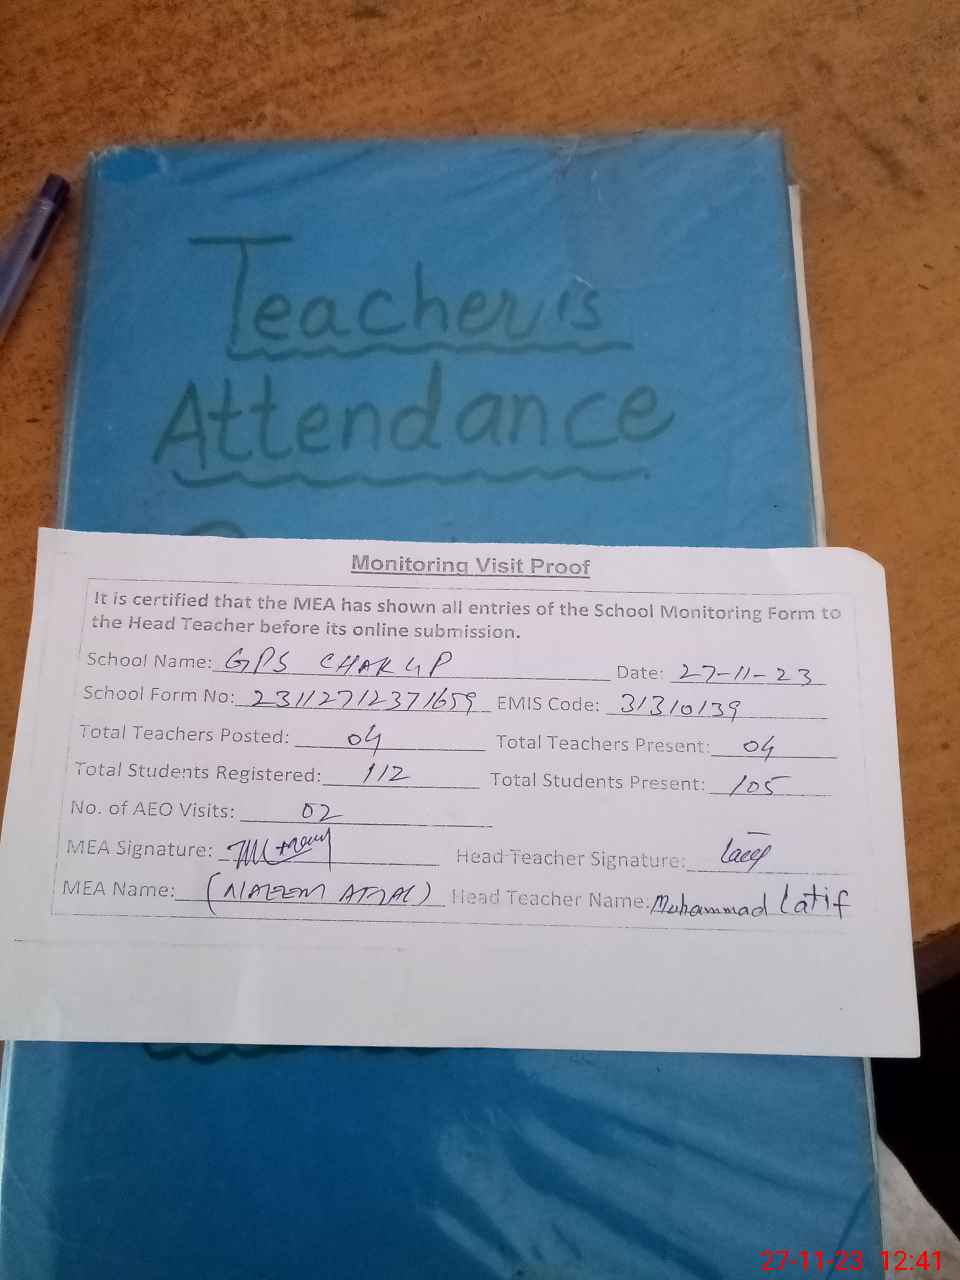 Teacher's
Attendance
Monitoring Visit Proof
It is certified that the MEA has shown all entries of the School Monitoring Form to
the Head Teacher before its online submission.
School Name: GPS CHAK 4P Date: 27-11-23
School Form No: 23112712371659 EMIS Code: 31310139
Total Teachers Posted: 04 Total Teachers Present: 04
Total Students Registered: 112 Total Students Present: 105
No. of AEO Visits: 02
MEA Signature: Head Teacher Signature:
MEA Name: (NAEEM AFZAL) Head Teacher Name: Muhammad Latif
27-11-23 12:41